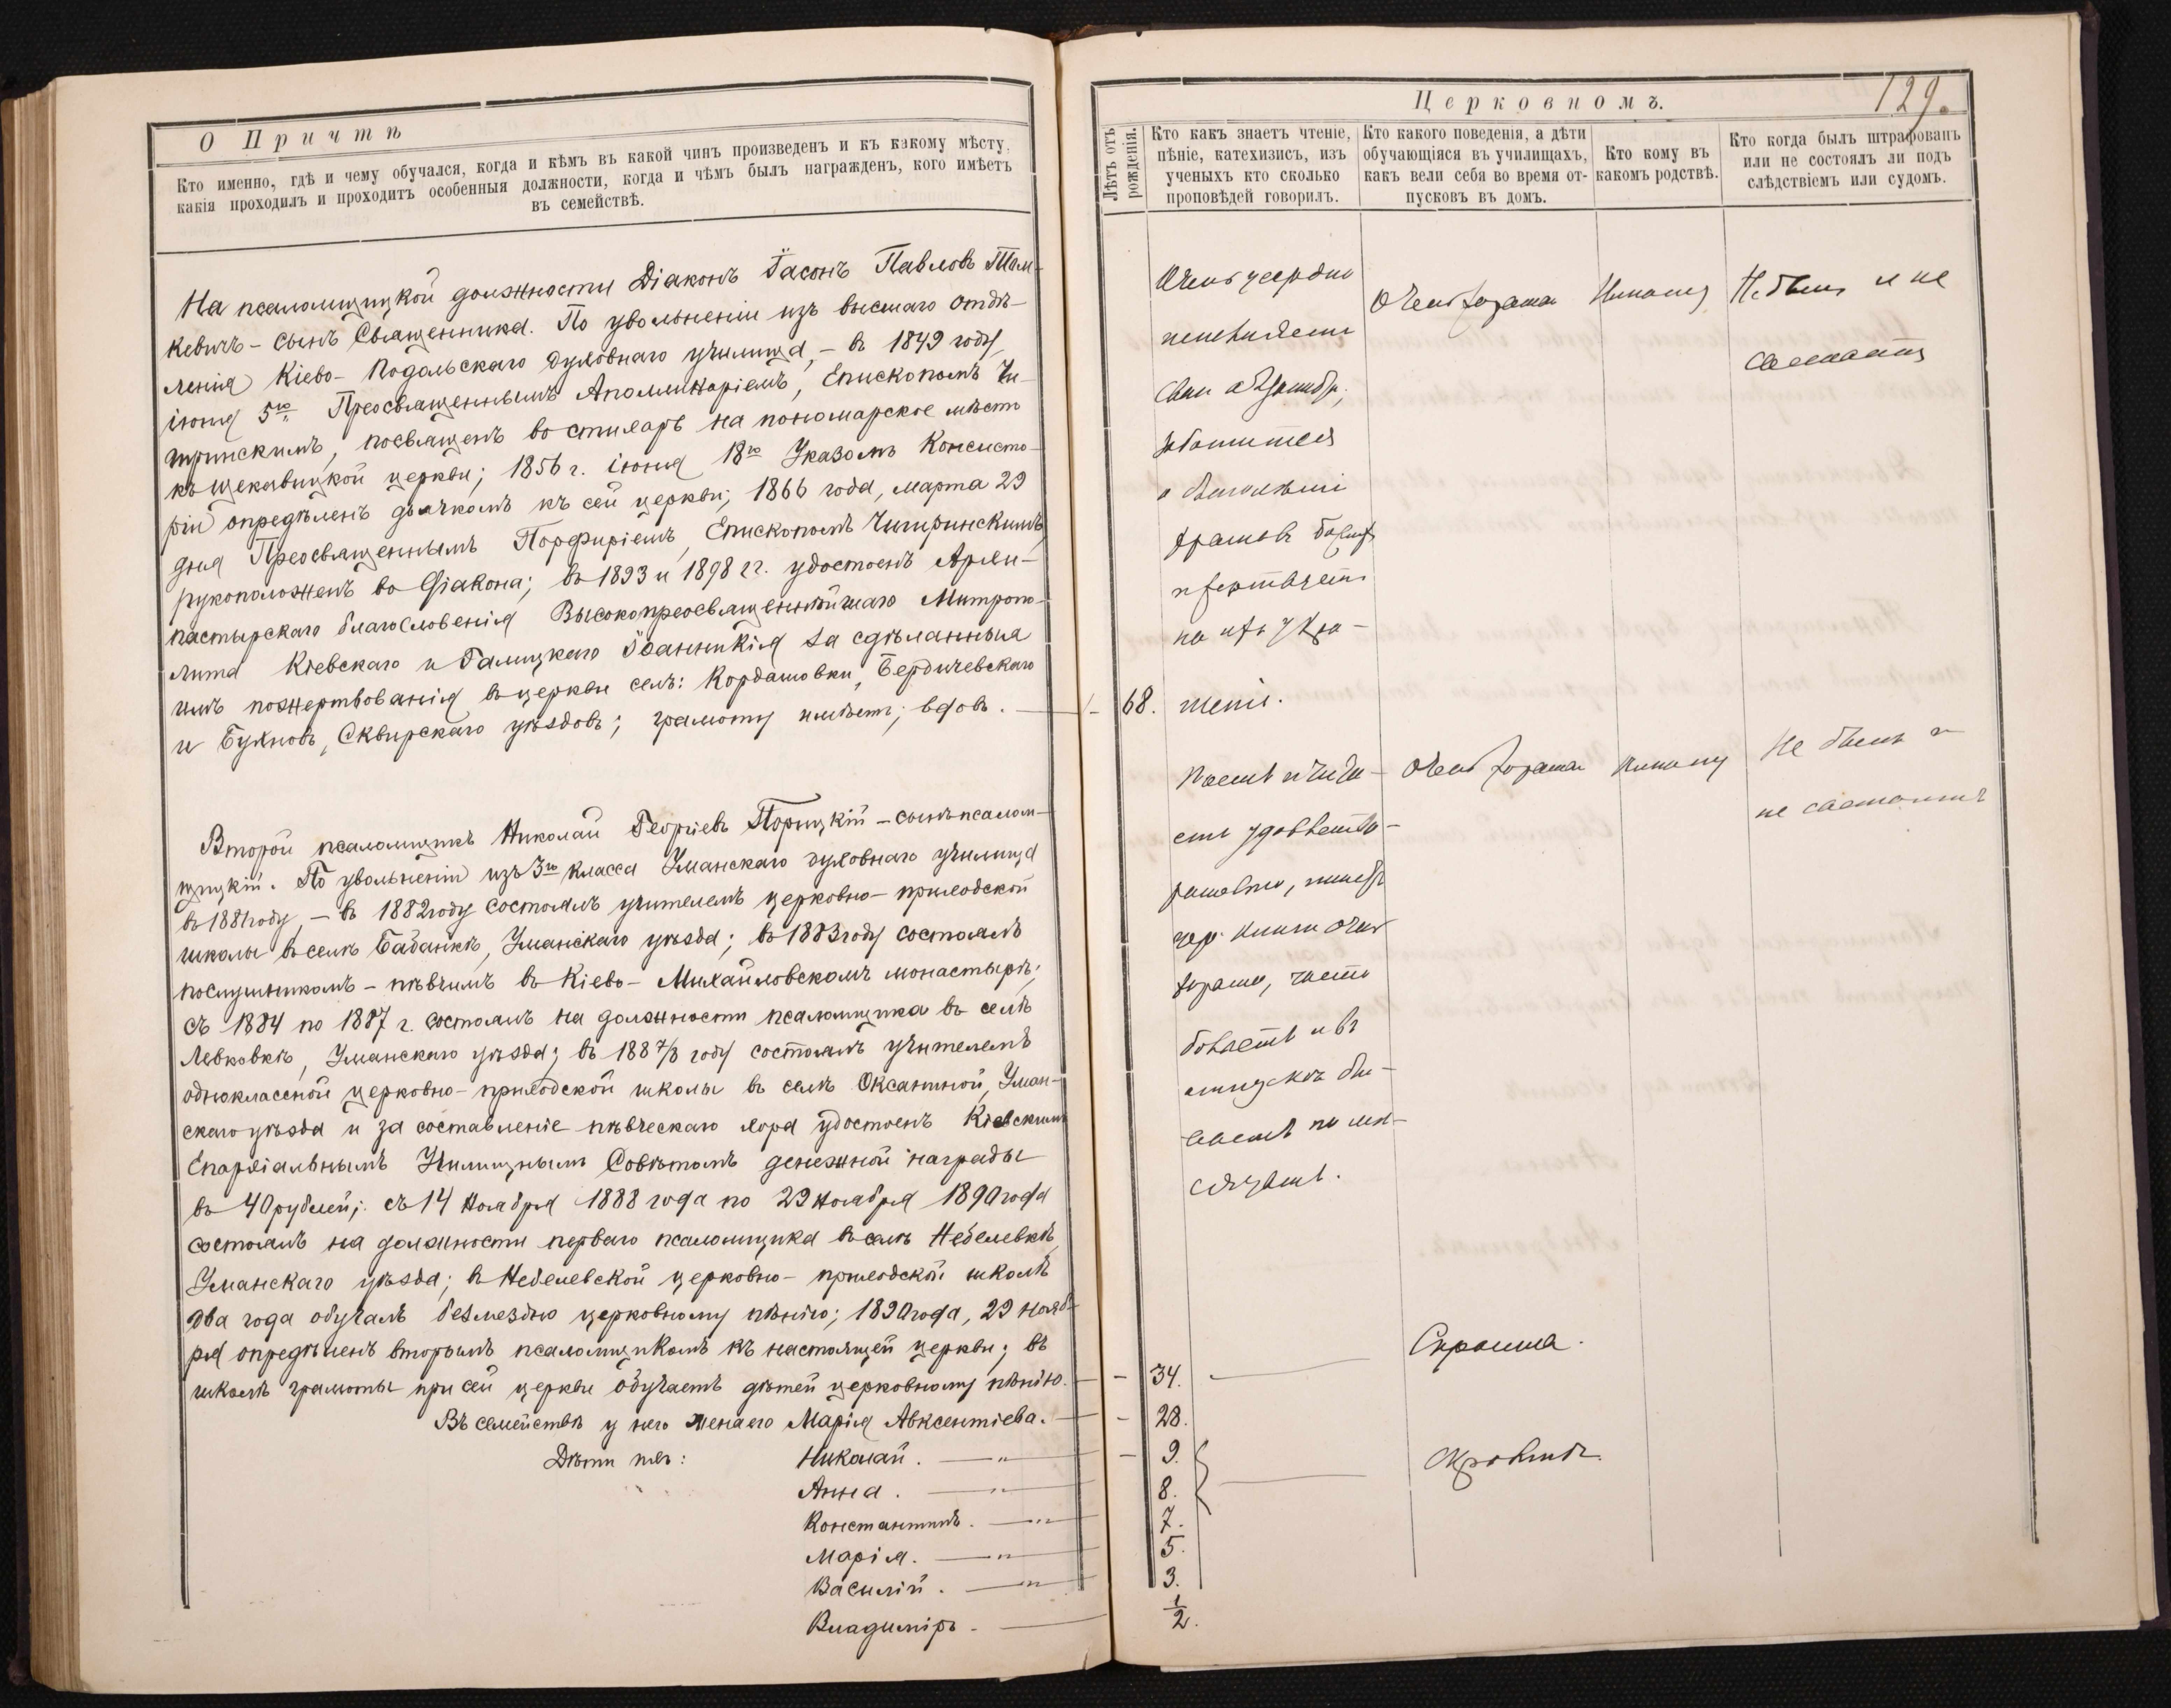 О Причтѣ
Кто именно, гдѣ и чему обучался, когда и кѣмъ въ какой чинъ произведенъ и къ какому мѣсту,
какія проходилъ и проходитъ особенныя должности, когда и чѣмъ былъ награжденъ, кого имѣетъ
въ семействѣ.
На псаломщицкой должности Діаконъ Іасонъ Павловъ
кевичъ - сынъ Священника. По увольненіи изъ высшаго отдѣ-
ленія Кіево-Подольскаго духовнаго училища, - въ 1849 году,
іюня 5го Преосвященнымъ Аполлинаріемъ, Епископомъ Чи-
гиринскимъ, посвященъ во стихарь на пономарское мѣсто
къ Щекавицкой церкви; 1856 г. іюня 18го Указомъ Консисто-
ріи опредѣленъ дьячкомъ къ сей церкви; 1866 года, марта 29
дня Преосвященнымъ Порфиріемъ, Епископомъ Чигиринскимъ,
рукоположенъ во Діакона; въ 1893 и 1898 гг. удостоенъ Архи-
пастырскаго благословенія Высокопреосвященнѣйшаго Митропо-
лита Кіевскаго и Галицкаго Іоанникія за сдѣланныя
имъ пожертвованія въ церкви селъ: Кордашовки, Бердичевскаго
и Буяновъ, Сквирскаго уѣздовъ; грамоту имѣетъ; вдовъ.
Второй псаломщикъ Николай Георгіевъ Порицкій - сынъ псалом-
щицкій. По увольненіи изъ 3го класса Уманскаго духовнаго училища
въ 1881 году, - въ 1882 году состоялъ учителемъ церковно-приходской
школы въ селѣ Бабанкѣ, Уманскаго уѣзда; въ 1883 году состоялъ
послушникомъ - пѣвчимъ въ Кіево-Михайловскомъ монастырѣ;
съ 1884 по 1887 г. состоялъ на должности псаломщика въ селѣ
Левковкѣ, Уманскаго уѣзда; въ 1887/8 году состоялъ учителемъ
одноклассной церковно-приходской школы въ селѣ Оксаниной, Уман-
скаго уѣзда и за составленіе пѣвческаго хора удостоенъ Кіевскимъ
Епархіальнымъ Училищнымъ Совѣтомъ денежной награды
въ 40 рублей; съ 14 Ноября 1888 года по 29 Ноября 1890 года
состоялъ на должности перваго псаломщика въ селѣ Небелевкѣ,
Уманскаго уѣзда; въ Небелевской церковно-приходской школѣ
два года обучалъ безмездно церковному пѣнію; 1890 года, 29 Нояб-
ря опредѣленъ вторымъ псаломщикомъ къ настоящей церкви; въ
школѣ грамоты при сей церкви обучаетъ дѣтей церковному пѣнію.
Въ семействѣ у него жена его Марія Авксентіева.
Дѣти ихъ: Николай. — "
Анна. — "
Константинъ. — "
Марія. — "
Василій. — "
Владиміръ. —
Церковномъ.
129.
Лѣтъ отъ рожденія.
Кто какъ знаетъ чтеніе,
пѣніе, катехизисъ, изъ
ученыхъ кто сколько
проповѣдей говорилъ.
Кто какого поведенія, а дѣти
обучающіяся въ училищахъ,
какъ вели себя во время от-
пусковъ въ домъ.
Кто кому въ
какомъ родствѣ.
Кто когда былъ штрафованъ
или не состоялъ ли подъ
слѣдствіемъ или судомъ.
Очень усердно
свои
заботится
о благолѣпіи
храмовъ
и жертвуетъ
на ихъ укра-
68. шеніе.
Очень хорошаго
Никому
Не былъ и не
состоитъ
Поетъ и чита-
етъ удовлетво-
рительно, пишетъ
книги очень
хорошо, часто
бываетъ и въ
Очень хорошаго
никому
Не былъ и
не состоитъ
34.
28.
9.
8.
7.
5.
3.
1/2.